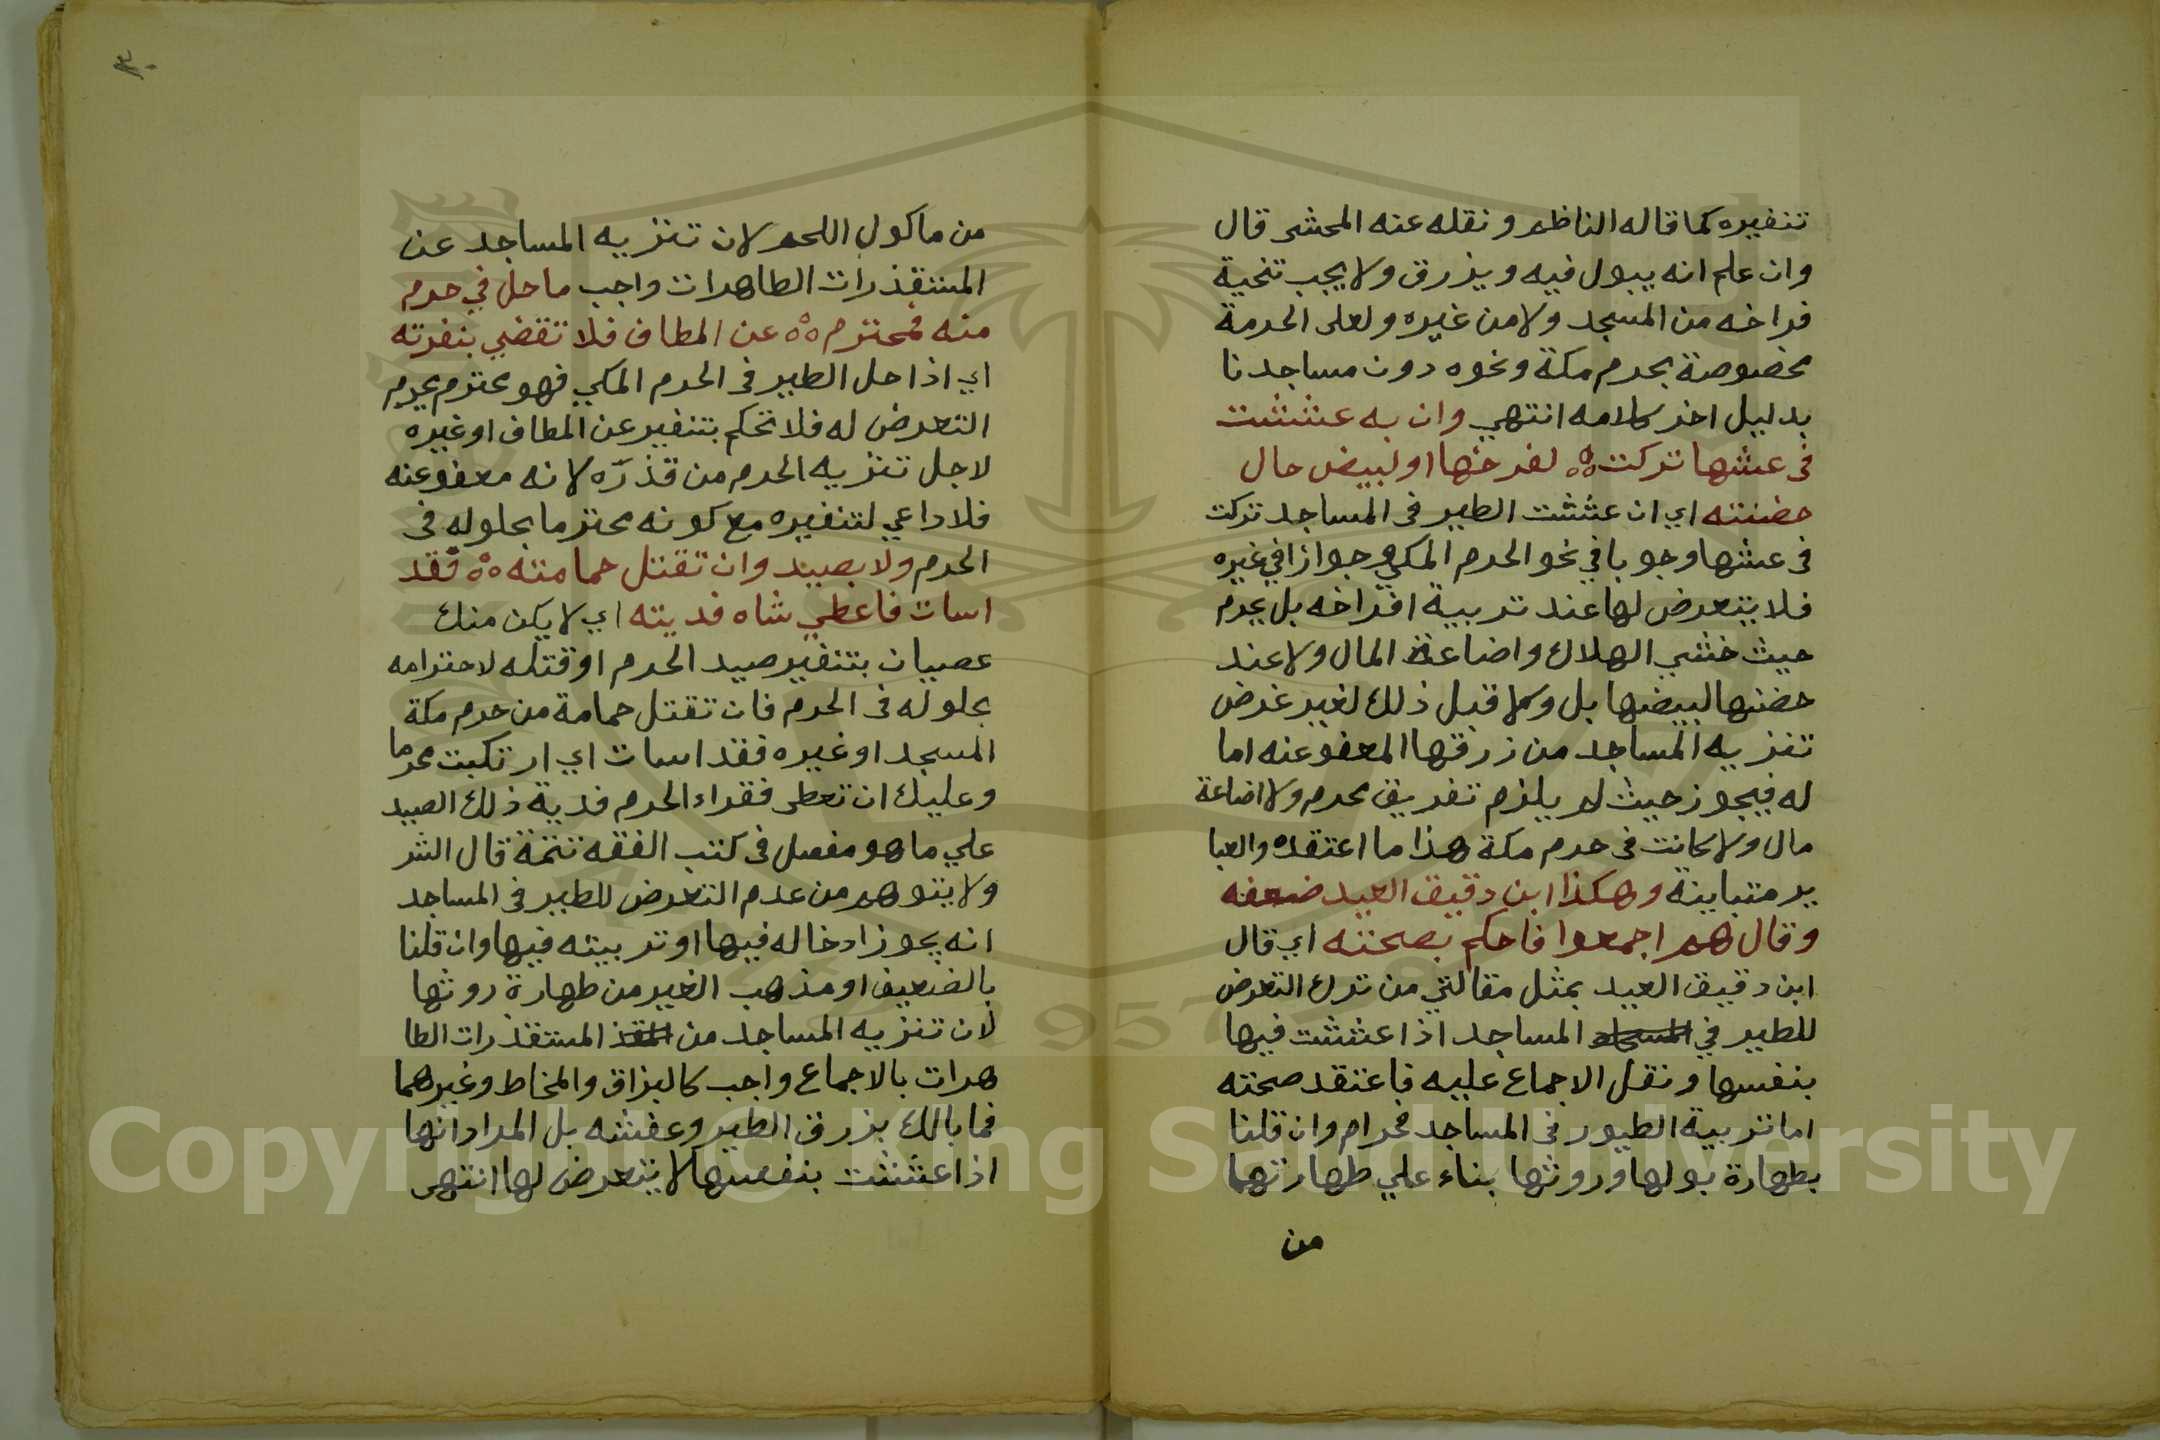 تنفيره كما قاله الناظم ونقله عنه المحشى قال
وان علم انه يبول فيه ويذرق ولا يجب تنحية
فراخه من المسجد ولا من غيره ولعل الحرمة
مخصوصة بحرم مكة ونحوه دون مساجدنا
بدليل اخر كلامه انتهي وان به عششت
فى عشها تركت لفرخها او لبيض حال
حضنته اي ان عششت الطير فى المساجد تركت
فى عشها وجوبا في نحو الحرم المكي وجوازا في غيره
فلا يتعرض لها عند تربية افراخه بل يحرم
حيث خشي الهلاك واضاعة المال ولا عند
حضنها لبيضها بل ولا قبل ذلك لغير غرض
تنزيه المساجد من زرقها المعفو عنه اما
له فيجوز حيث لم يلزم تفريق محرم ولا اضاعة
مال ولا كانت فى حرم مكة هذا ما اعتقده والعبا
ير متباينة وهكذا ابن دقيق العيد ضعفه
وقال هم اجمعوا فاحكم بصحته اي قال
ابن دقيق العيد بمثل مقالتي من ترك التعرض
للطير في المساجد اذا عششت فيها
بنفسها ونقل الاجماع عليه فاعتقد صحته
اما تربية الطيور فى المساجد فحرام وان قلنا
بطهارة بولها وروثها بناء علي طهارتهما
من
٣٠
من ماكول اللحم لان تنزيه المساجد عن
المستقذرات الطاهرات واجب ما حل في حرم
منه فمحترم عن المطاف فلا تقضي بنفرته
اي اذا حل الطير فى الحرم المكي فهو محترم يحرم
التعرض له فلا تحكم بتنفير عن المطاف او غيره
لاجل تنزيه الحرم من قذره لانه معفو عنه
فلا داعي لتنفيره مع كونه محترما بحلوله فى
الحرم ولا بصيد وان تقتل حمامته فقد
اسات فاعطي شاه فديته اي لا يكن منك
عصيان بتنفير صيد الحرم او قتله لاحترامه
بحلوله فى الحرم فان تقتل حمامة من حرم مكة
المسجد او غيره فقد اسات اي ارتكبت محرما
وعليك ان تعطى فقراء الحرم فدية ذلك الصيد
علي ما هو مفصل فى كتب الفقه تتمة قال الشر
ولا يتوهم من عدم التعرض للطير فى المساجد
انه يجوز ادخاله فيها او تربيته فيها وان قلنا
بالضعيف او مذهب الغير من طهارة روثها
لان تنزيه المساجد من المستقذرات الطا
هرات بالاجماع واجب كالبزاق والمخاط وغيرهما
فما بالك بزرق الطير وعفشه بل المراد انها
اذا عششت بنفسها لا يتعرض لها انتهى
1957
Copyright © King Saud University